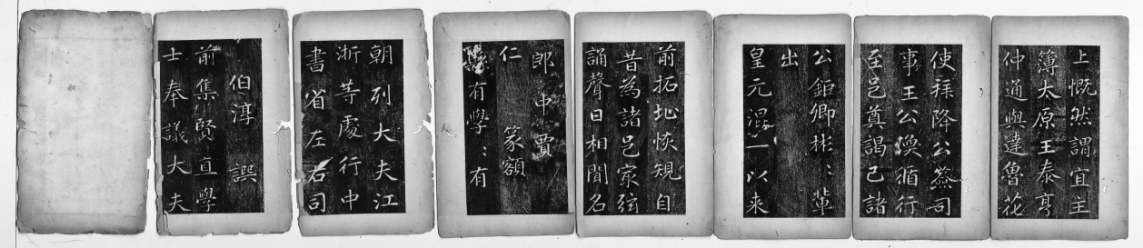 伯淳 譔
前集賢直學
士奉議大夫
朝列大夫江
浙等處行中
書省左右司
郎中賈
仁 篆額
縣有學〻有
前拓址恢規自
昔為諸邑冣絃
誦聲日相聞名
公鉅卿彬〻輩
出
皇元混一以来
使拜降公簽司
事王公渙循行
至邑奠謁已諸
上慨然謂宜主
簿太原王泰亨
仲通與達魯花